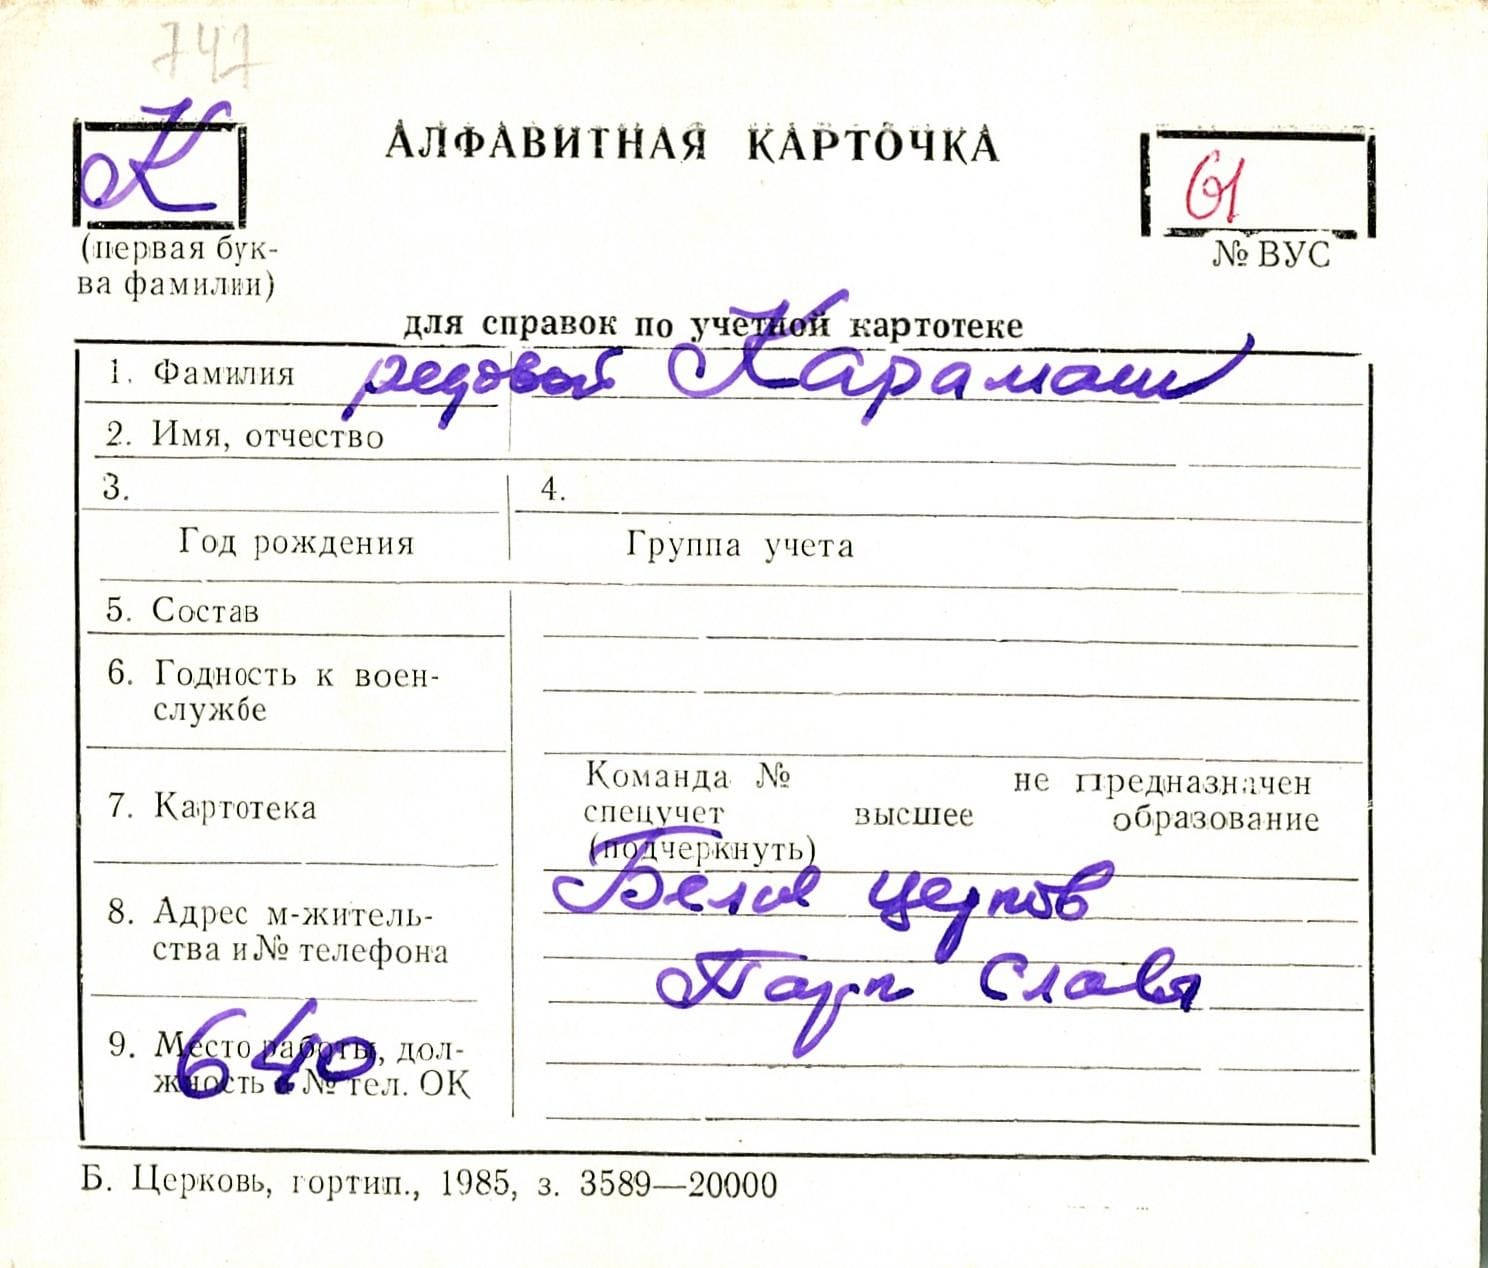 747
К
АЛФАВИТНАЯ КАРТОЧКА
61
(первая бук-
ва фамилии)
№ ВУС
для справок по учетной картотеке
1. Фамилия редовой Карамаш
2. Имя, отчество
3. 4.
Год рождения Группа учета
5. Состав
6. Годность к воен-
службе
7. Картотека
Команда № не предназначен
спецучет высшее образование
(подчеркнуть)
8. Адрес м-житель-
ства и № телефона
Парк Слави
9. Место работы, дол-
жность и № тел. ОК
640
Б. Церковь, гортип., 1985, з. 3589—20000